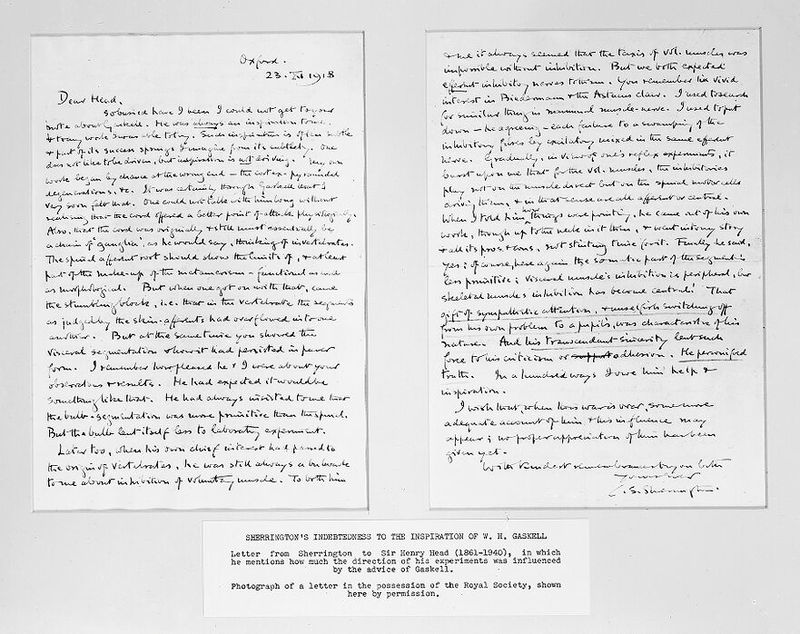 Oxford.
23. XI 1918
Dear Head,
So busied have I been I could not get to your
note about Gaskell. He was always an inspiration to me.
& to any work I was able to try. Such inspiration is often subtle
& part of its success springs I imagine from its subtlety. One
does not like to be driven, but inspiration is not driving. My own
work began by chance at the wrong end – the cortex, pyramidal
degenerations, &c. It was certainly through Gaskell that I
very soon felt that. One could not talk with him long without
realising that the cord offered a better point of attack physiologically.
Also, that the cord was originally & still must essentially be
a chain of 'ganglia', as he would say, thinking of invertebrates.
The spinal afferent root should show the limits of, & at least
part of the make-up of the metamerism – functional as well
as morphological. But when one got on with that, came
the stumbling block, i.e. that in the vertebrate the segments
as judged by the skin-afferents had overflowed into one
another. But at the same time you showed the
visceral segmentation & how it had persisted in purer
form. I remember how pleased he & I were about your
observations & results. He had expected it would be
something like that. He had always insisted to me that
the bulb-segmentation was more primitive than the spinal.
But the bulb lent itself less to laboratory experiment.
Later too, when his own chief interest had passed to
the origin of vertebrates, he was still always a
to me about inhibition of voluntary muscle. To both him
& me it always seemed that the taxis of vol. muscles was
impossible without inhibition. But we both expected
efferent inhibitory nerves to them. You remember his vivid
interest in Biedermann & the Astacus claw. I used to search
for similar things in mammal muscle-nerve. I used to put
down – he agreeing – each failure to a swamping of the
inhibitory fibres by excitatory mixed in the same efferent
nerve. Gradually, in view of one's reflex experiments, it
burst upon me that for the vol. muscles, the inhibitories
play not on the muscle direct but on the spinal motor cells
driving them, & in that sense are all afferent or central.
When I told him how things were pointing, he came out of his own
work, though up to the neck in it then, & went into my story
& all its pros & cons, not stinting time for it. Finally he said,
Yes; of course, here again the somatic part of the segment is
less primitive; visceral muscle's inhibition is peripheral, but
skeletal muscle's inhibition has become central! That
gift of sympathetic attention, & unselfish switching off
from his own problem to a pupil's, was characteristic of his
nature. And his transcendent sincerity lent such
force to his criticism or support adhesion. He personified
truth. In a hundred ways I owe him help &
inspiration.
I wish that, when this war is over, some more
adequate account of him & his influence may
appear; no proper appreciation of him has been
given yet.
With kindest remembrances to you both
Yours ever
C. S. Sherrington.
SHERRINGTON'S INDEBTEDNESS TO THE INSPIRATION OF W. H. GASKELL
Letter from Sherrington to Sir Henry Head (1861-1940), in which
he mentions how much the direction of his experiments was influenced
by the advice of Gaskell.
Photograph of a letter in the possession of the Royal Society, shown
here by permission.